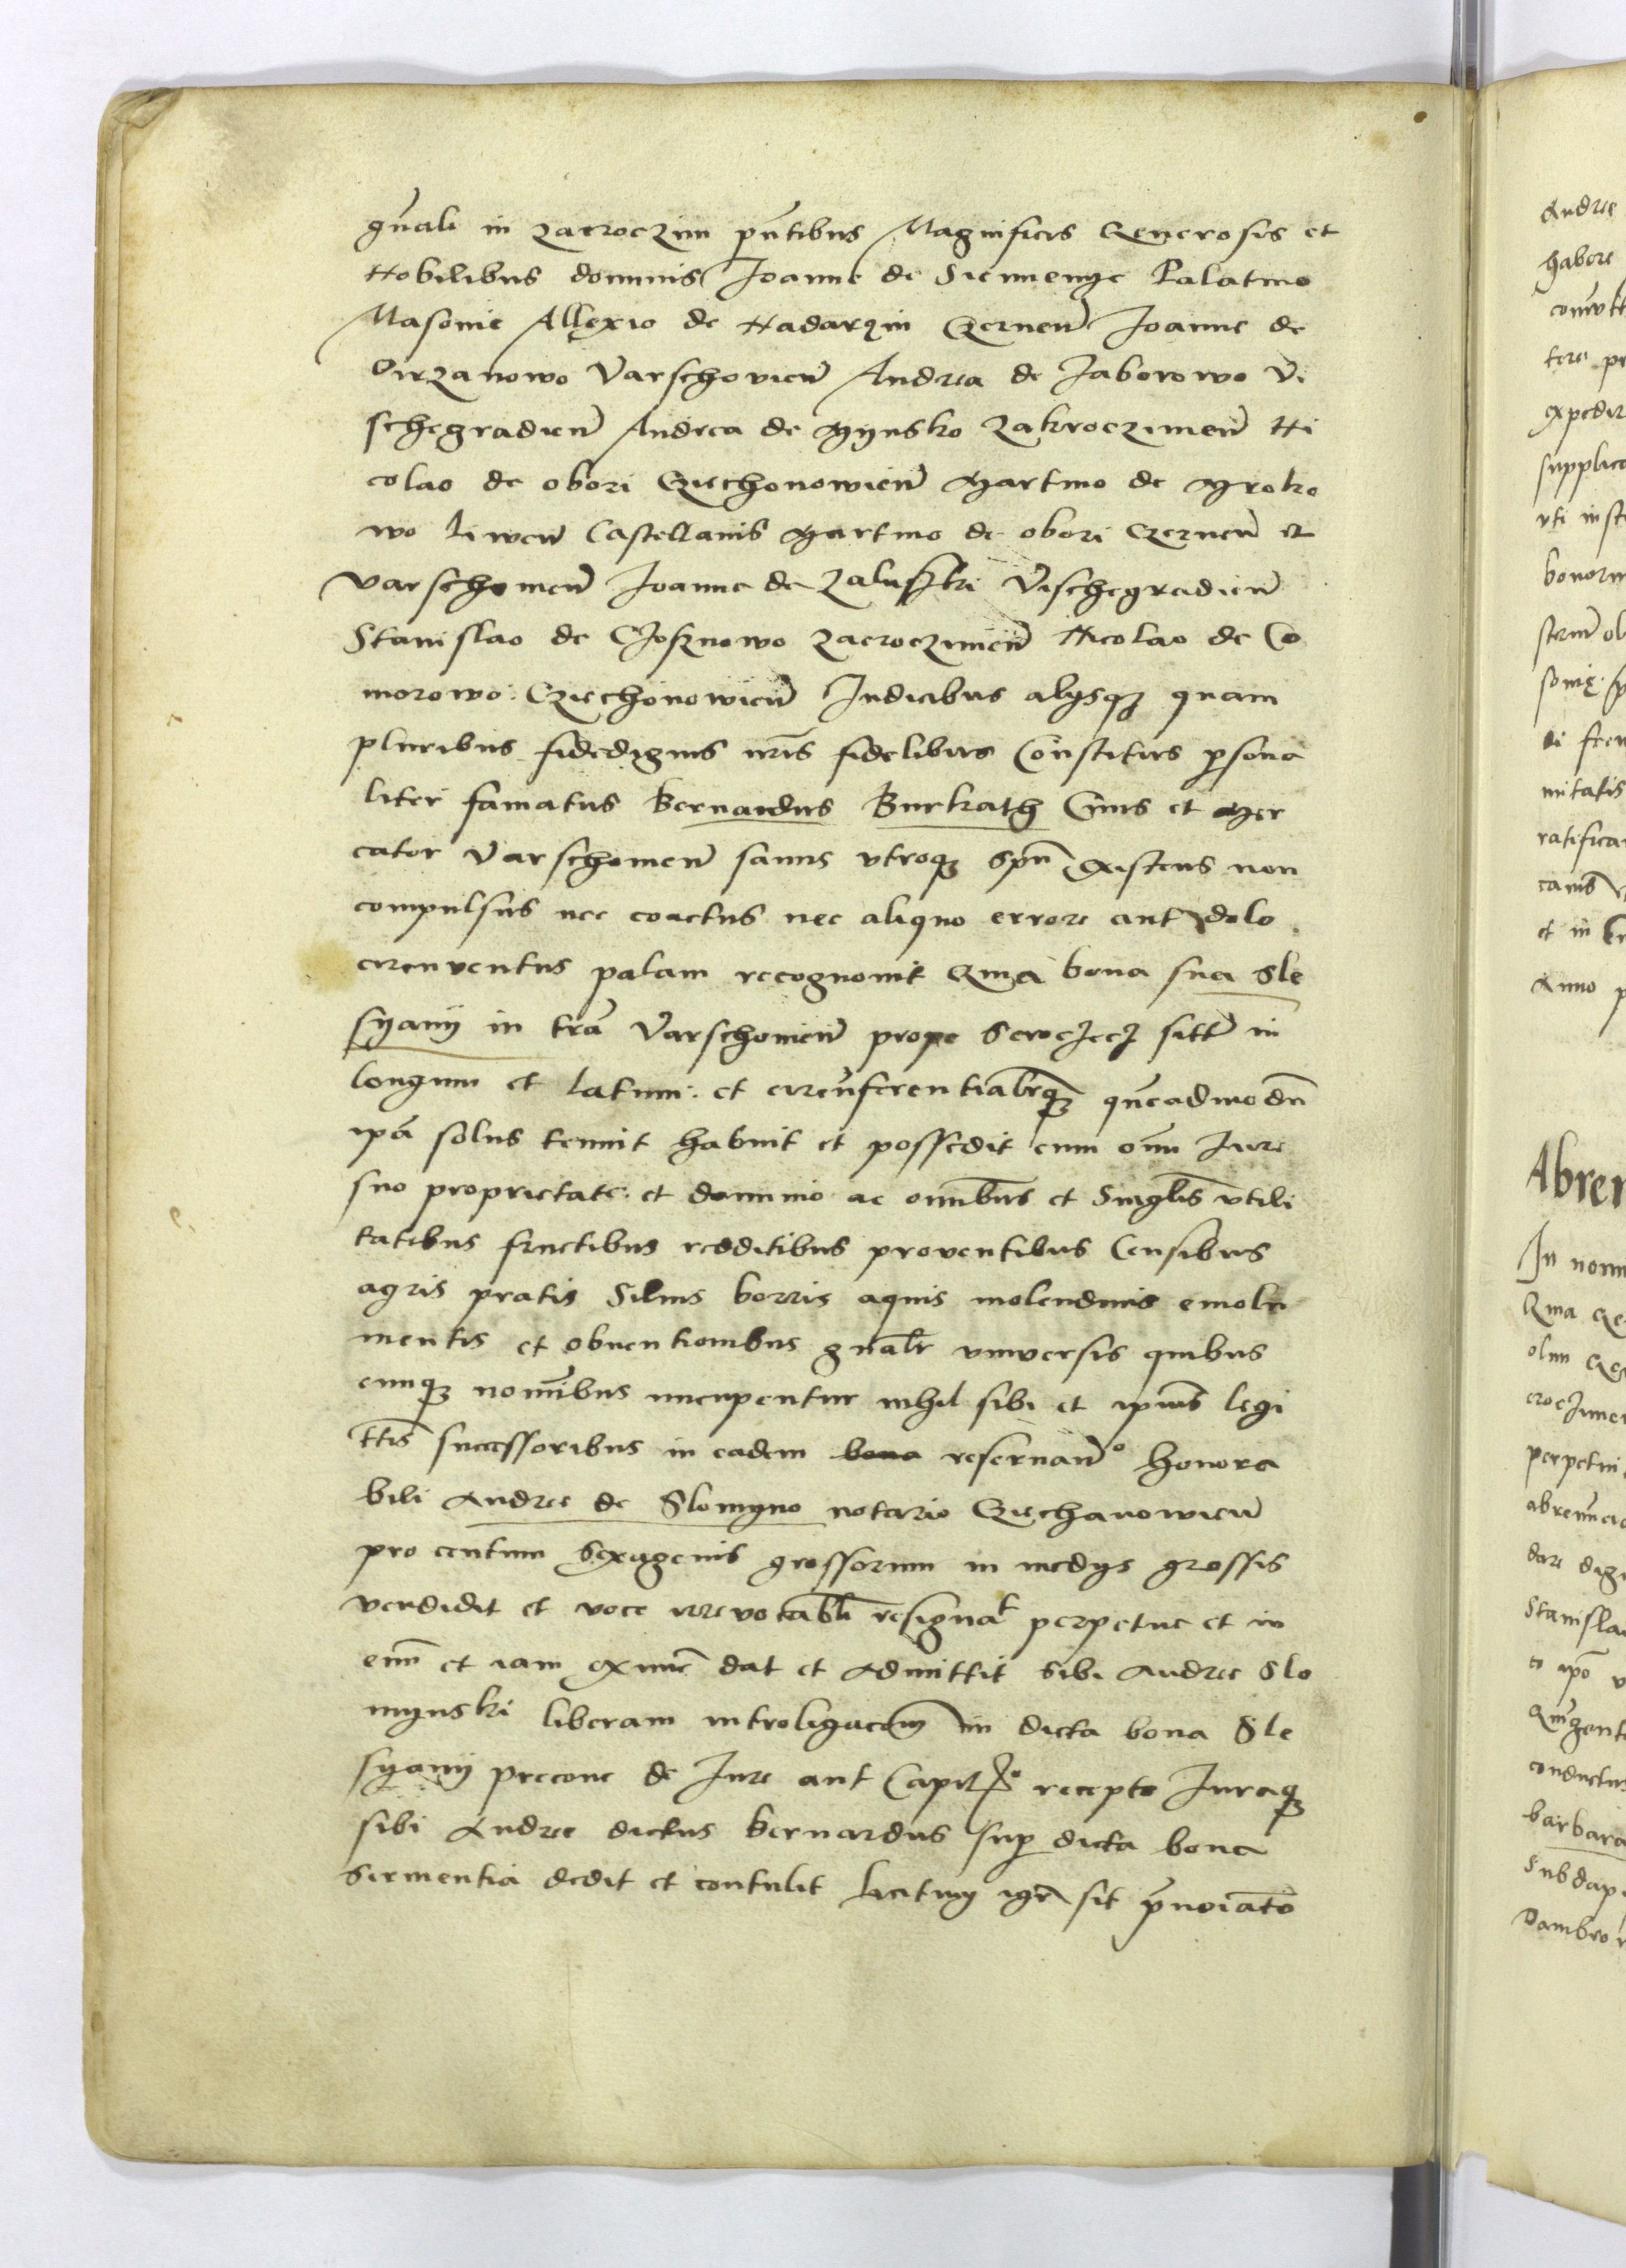 gn̄ali in Zacroczim pn̄tibus Magnificis Generosis et
Nobilibus dominis Joanne de Siemienye Palatino
Masovie Allexio de Nadarzin Czernen̄ Joanne de
Dirzanowo Varschovien̄ Andrea de Jaborowo Vi
schegradien̄ Andrea de Mynsko Zakroczimen̄ Ni
colao de obori Cziechonowien̄ Martino de Mroko
wo Liwen̄ Castellanis Martino de obori Czernen̄ et
Varschovien̄ Joanne de Zaluszki Vischegradien̄
Stanislao de Cloſznowo Zacroczimen̄ Nicolao de Co
morowo Cziechonowien̄ Iudicibus alijsqȝ quam
pluribus fidedignis nr̄is fidelibus Constitutus p̄sona
liter famatus Bernardus Burkath Civis et Mer
cator Varschovien̄ sanus vtroqȝ spn̄ existens non
compulsus nec coactus nec aliquo errore aut dolo
circūventus palam recognovit Quia bona sua Sle
syany in tr̄a Varschovien̄ prope Seroczecz sitt̄ in
longum et latum et circūferentialr̄qȝ quēadmodū
ip̄a solus tenuit habuit et possedit cum om̄i Jure
suo proprietate et dominio ac om̄ibus et Singlis̄ vtili
tatibus fructibus redditibus proventibus Censibus
agris pratis Silvis borris aquis molendinis emolu
mentis et obventionibus gn̄alr̄ vniversis quibus
cunqȝ nomīnibus nuncupentur nihil sibi et ip̄ius legi
tt̄is successoribus in eadem bona reservan̄º Honora
bili Andree de Slomyno notario Cziechanowien̄
pro centum sexagenis grossorum in medys grossis
vendidit et voce irrevocabl̄i resignat perpetue et in
evū et iam exnūc dat et admittit sibi Andree Slo
mynski liberam introligacōem in dicta bona Sle
syany precone de Jure aut Capitº recepto Juraqȝ
sibi Andree dictus Bernardus sup dicta bona
servientia dedit et contulit Licitūqȝ igr̄ sit p̄noīato